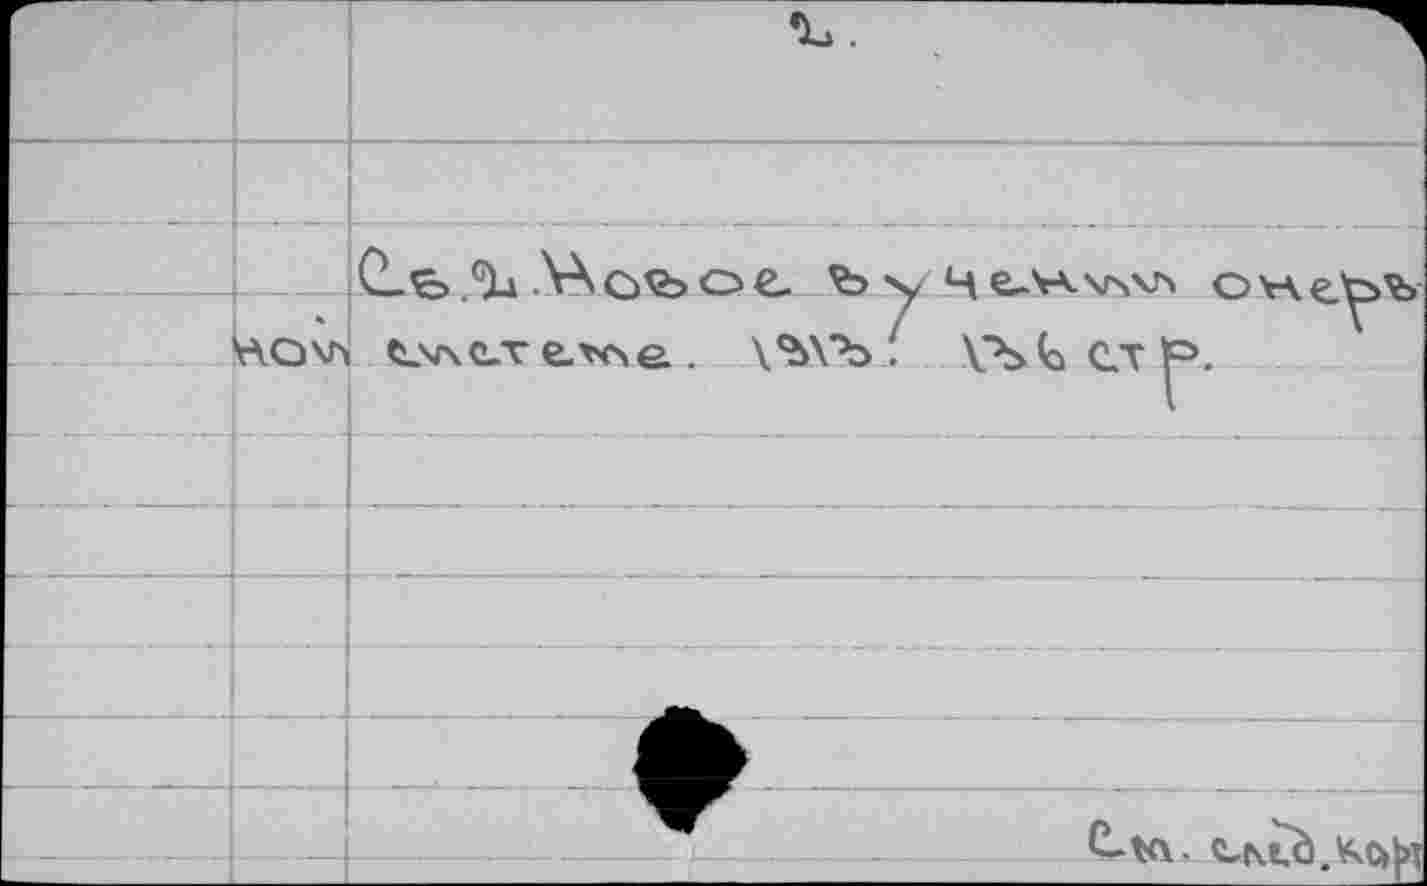 2.
Св.2. Новое в учении о нерв-
ной системе. 1913. 136 стр.
См. след. кар